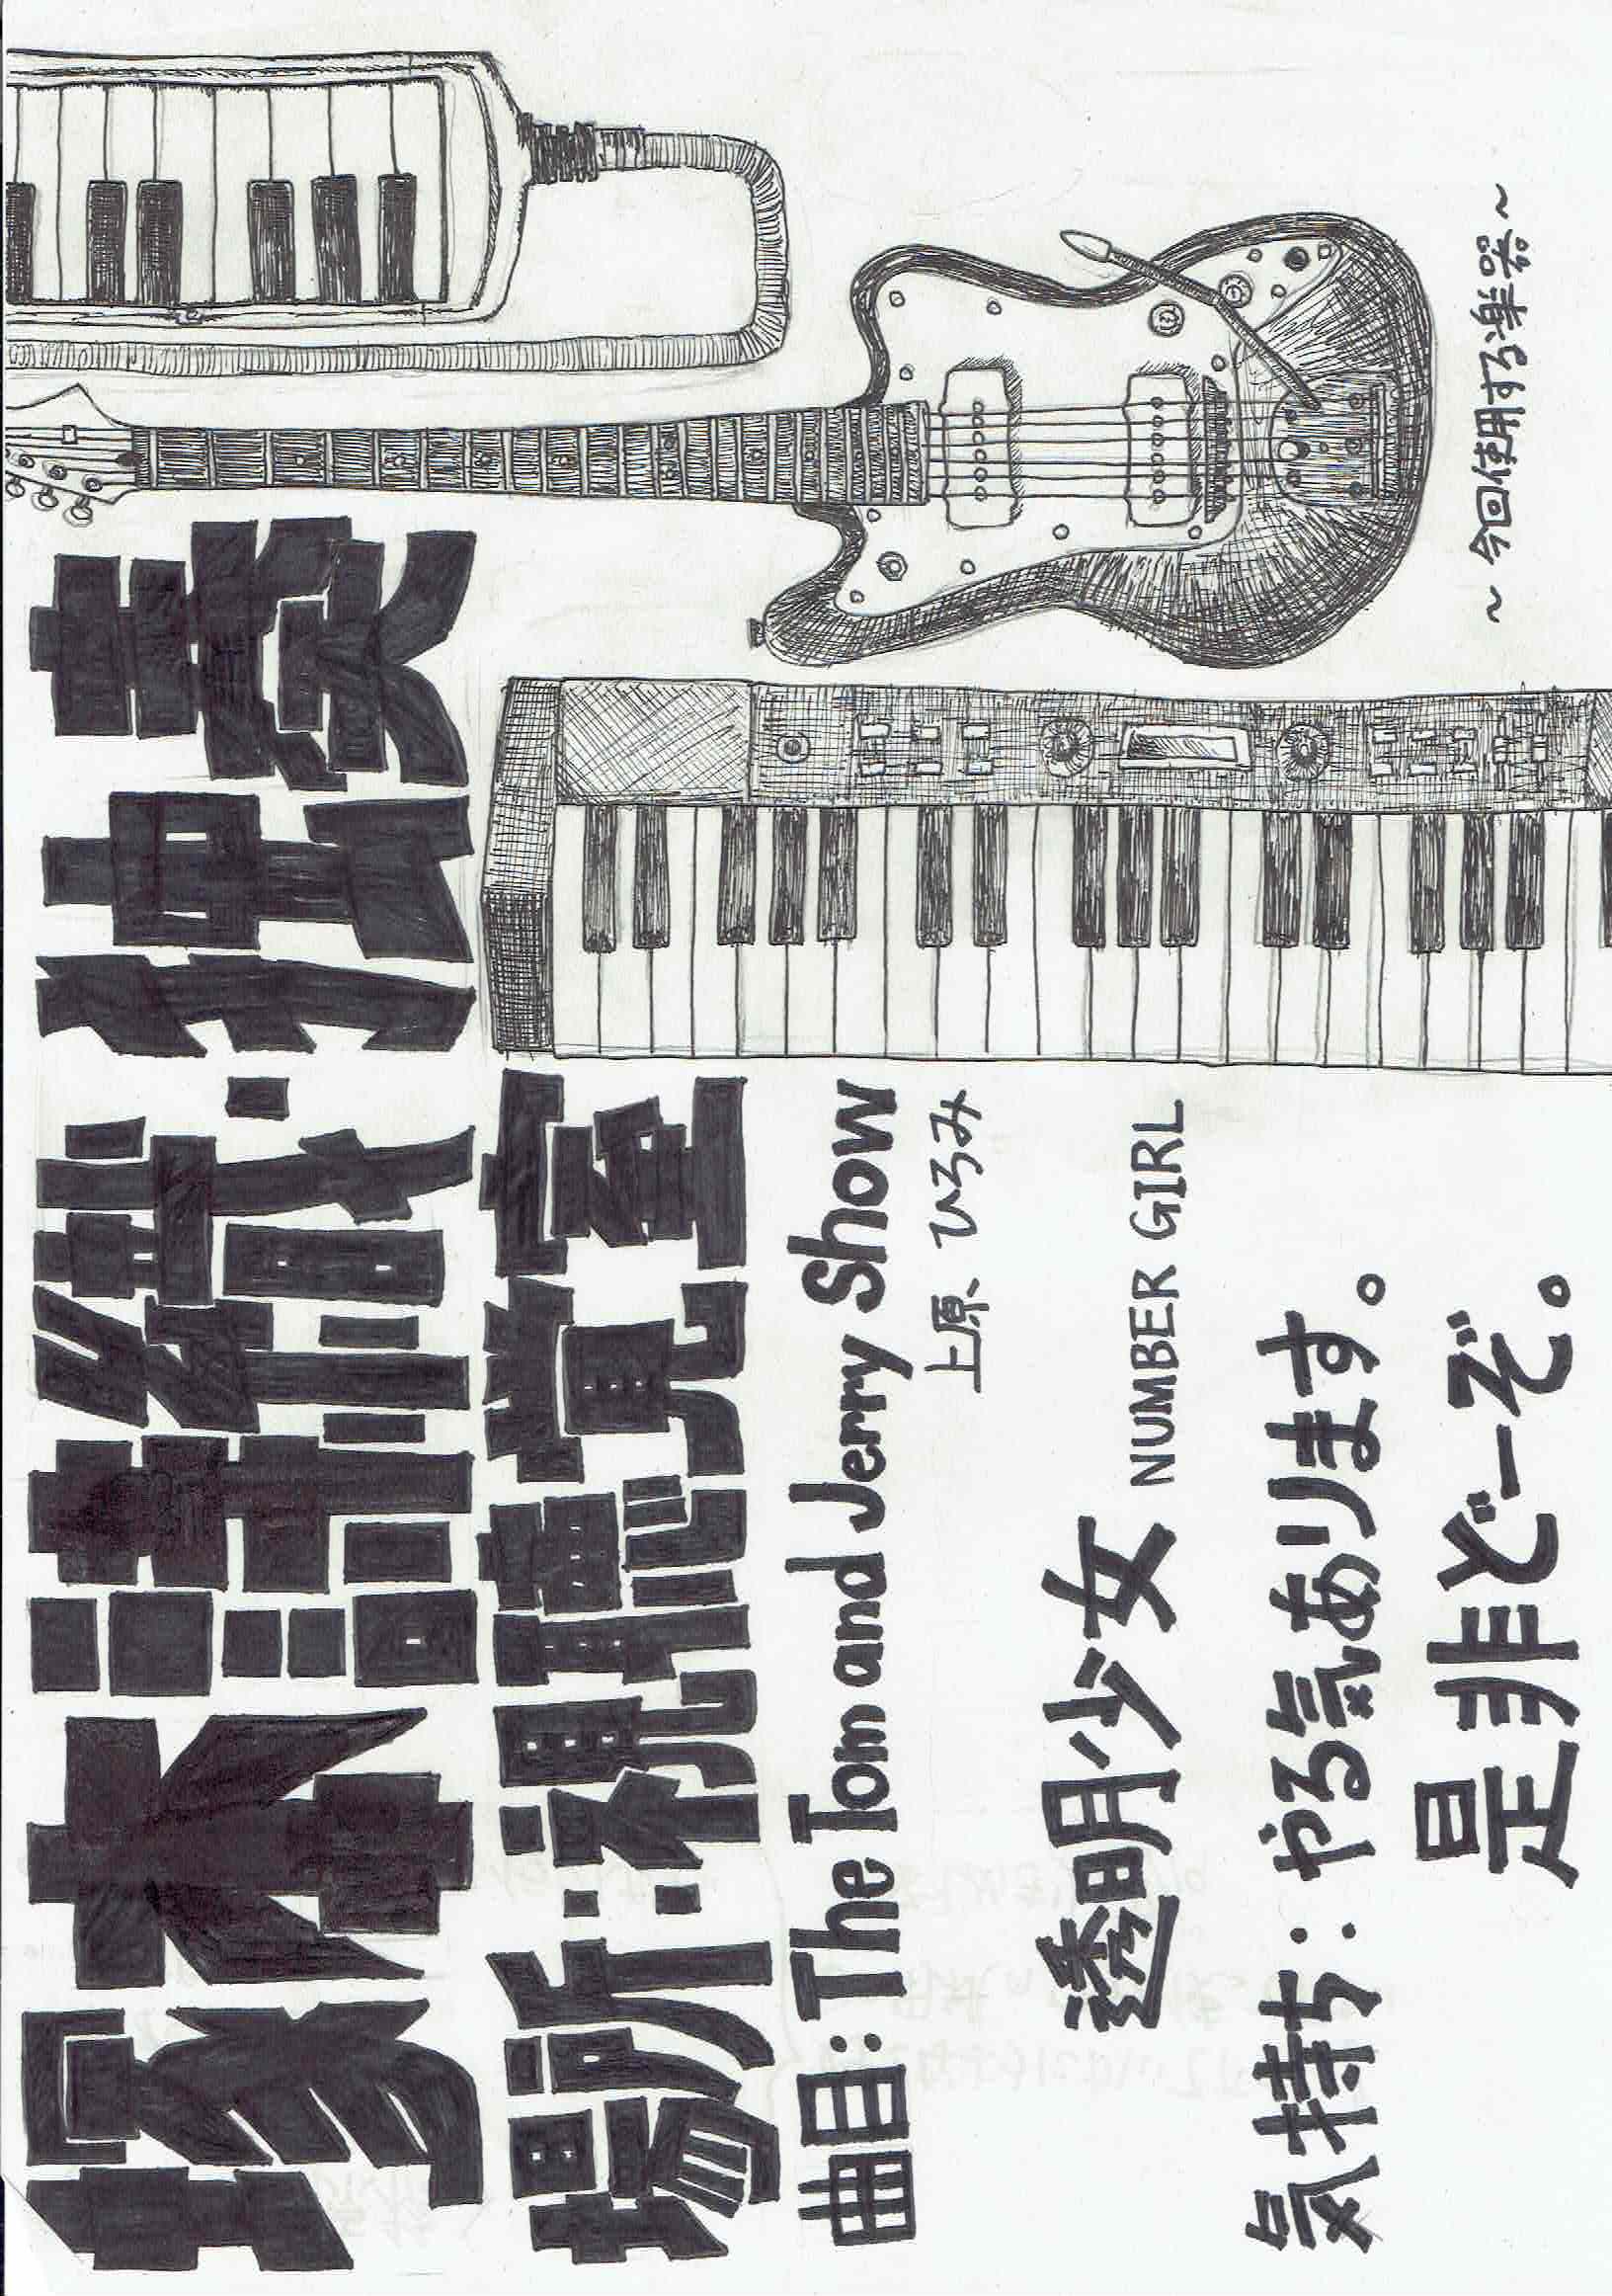 塚本詩織・独奏
場所:視聴覚室
曲目:The Tom and Jerry Show
上原 ひろみ
透明少女 NUMBER GIRL
気持ち:やる気あります。
是非どーぞ。
～今回使用する楽器～